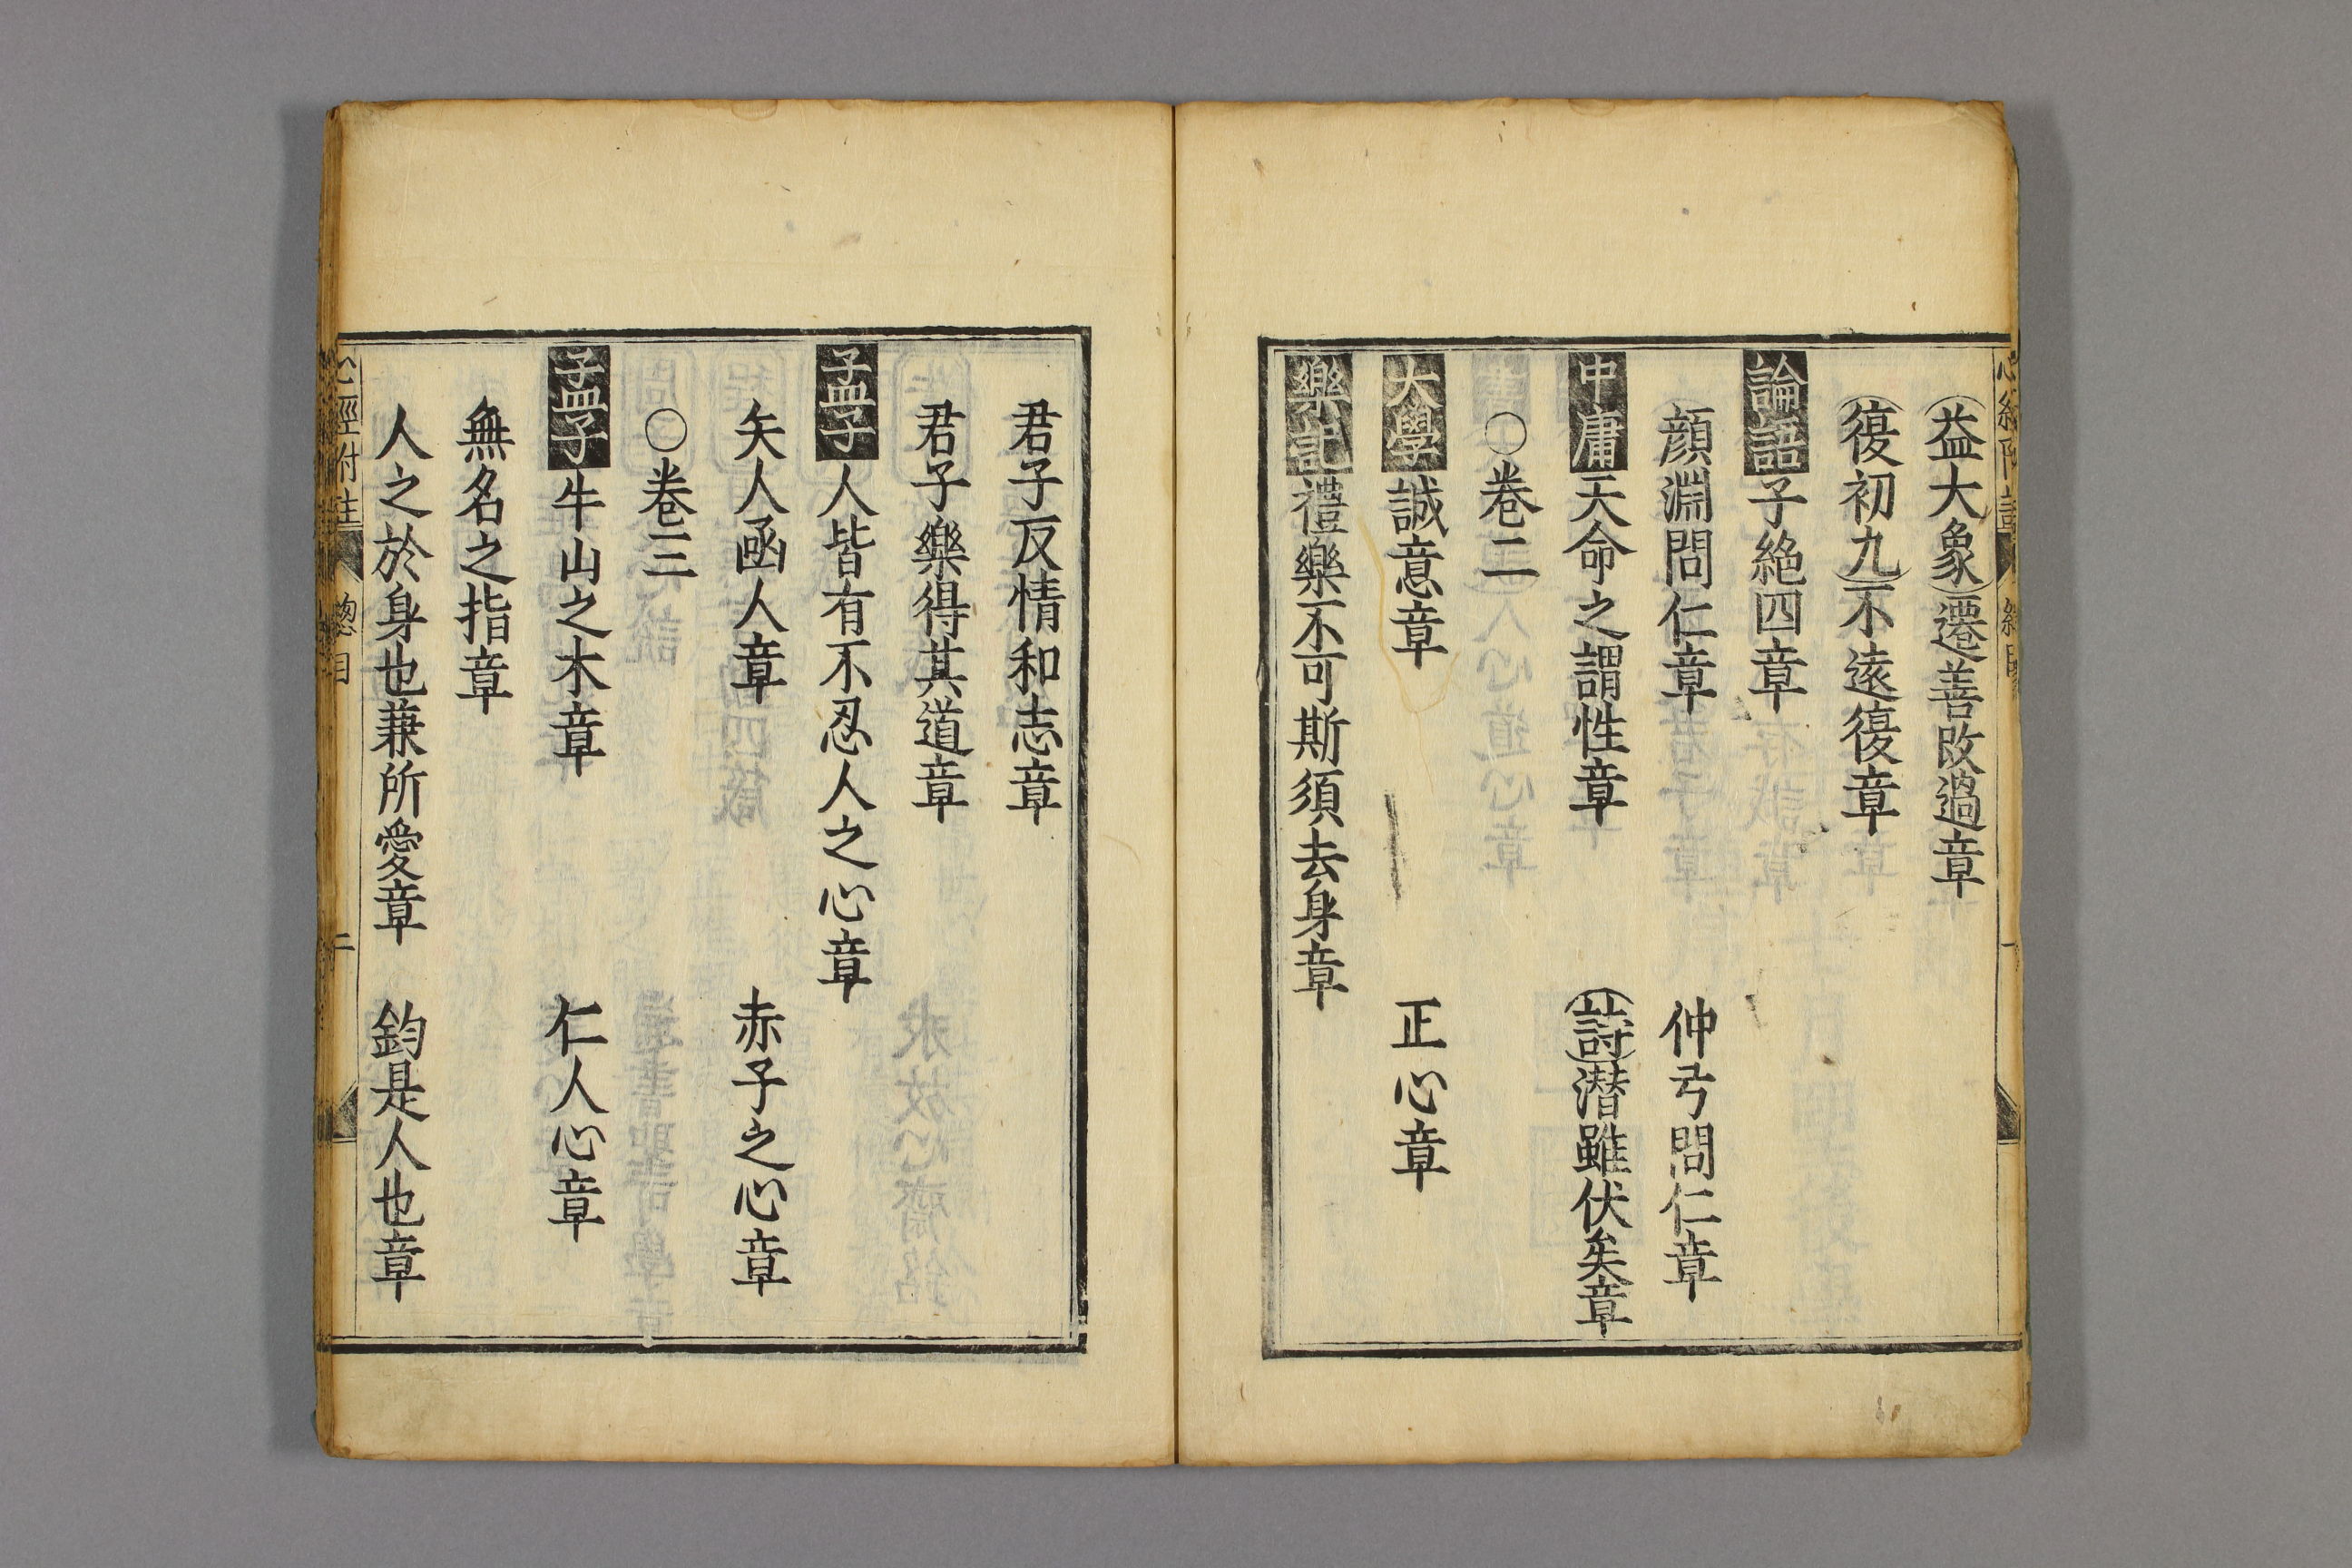 益大象遷善改過章
復初九不遠復章
論語子絶四章
顔淵問仁章 仲弓問仁章
中庸天命之謂性章 詩潜雖伏矣章
○卷二
大學誠意章 正心章
樂記禮樂不可斯須去身章
君子反情和志章
君子樂得其道章
孟子人皆有不忍人之心章
矢人函人章 赤子之心章
○卷三
孟子牛山之木章 仁人心章
無名之指章
人之於身也兼所愛章 鈞是人也章
心經附註 總目 二